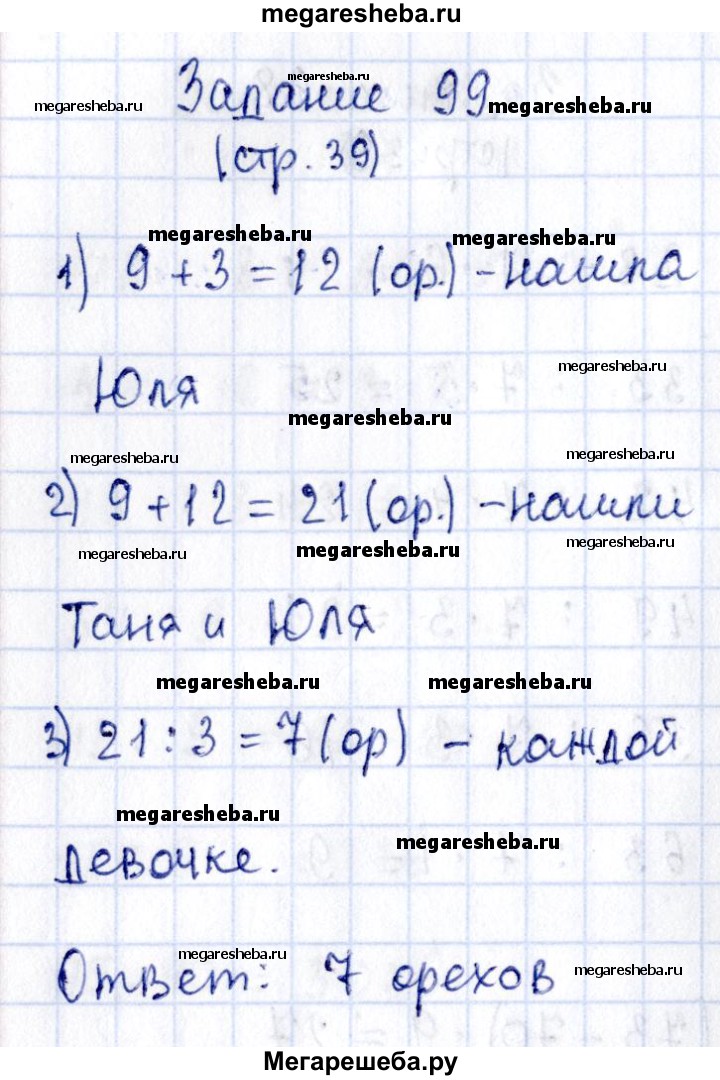 megaresheba.ru
megaresheba.ru
Задание 99
megaresheba.ru
megaresheba.ru
(стр. 39)
megaresheba.ru
megaresheba.ru
1) 9 + 3 = 12 (ор.) - нашла
megaresheba.ru
Юля
megaresheba.ru
megaresheba.ru
megaresheba.ru
2) 9 + 12 = 21 (ор.) - нашли
megaresheba.ru
megaresheba.ru
megaresheba.ru
Таня и Юля
megaresheba.ru
megaresheba.ru
3) 21 : 3 = 7 (ор) - каждой
megaresheba.ru
megaresheba.ru
девочке.
megaresheba.ru
megaresheba.ru
Ответ: 7 орехов
Мегарешеба.ру